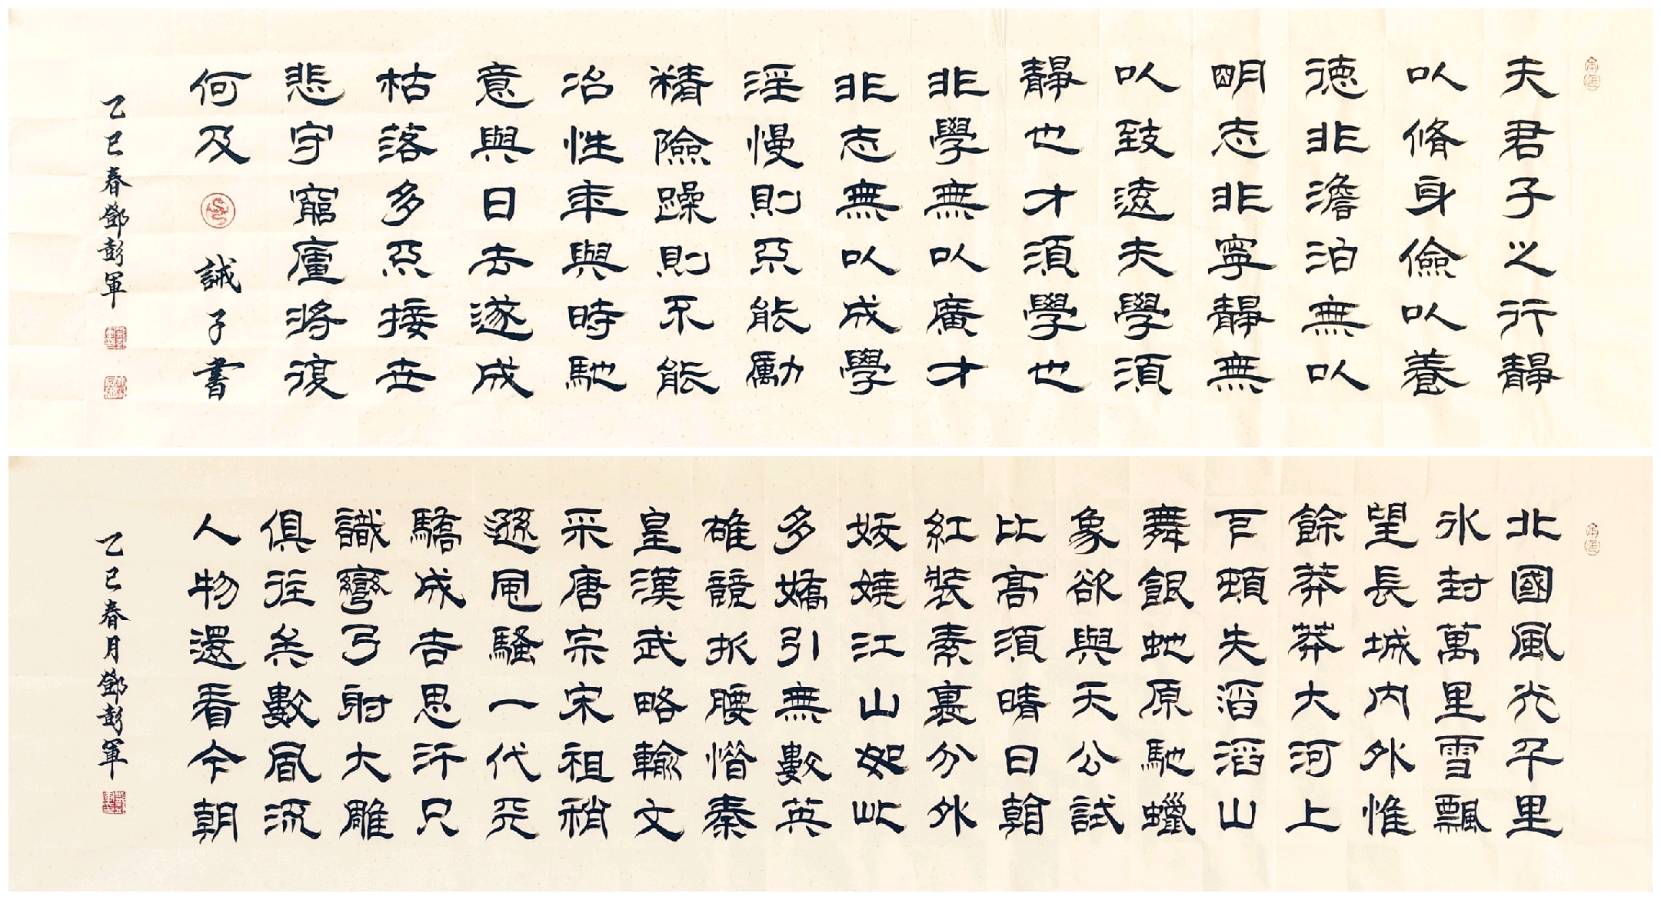 夫君子之行靜
以脩身儉以養
德非澹泊無以
明志非寧靜無
以致遠夫學須
靜也才須學也
非學無以廣才
非志無以成學
淫慢則不能勵
精險躁則不能
冶性年與時馳
意與日去遂成
枯落多不接世
悲守窮廬將復
何及 誡子書
乙巳春鄧彭軍
北國風光千里
冰封萬里雪飄
望長城內外惟
餘莽莽大河上
下頓失滔滔山
舞銀蛇原馳蠟
象欲與天公試
比高須晴日看
紅裝素裹分外
妖嬈江山如此
多嬌引無數英
雄競折腰惜秦
皇漢武略輸文
采唐宗宋祖稍
遜風騷一代天
驕成吉思汗只
識彎弓射大雕
俱往矣數風流
人物還看今朝
乙巳春月鄧彭軍